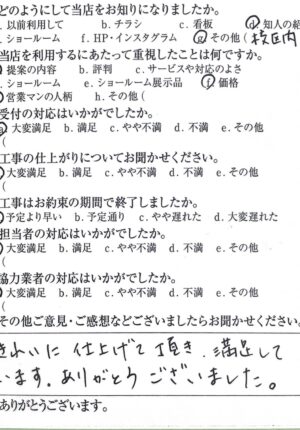 どのようにして当店をお知りになりましたか。
. 以前利用して b. チラシ c. 看板 ⓓ 知人の紹
. ショールーム f. HP・インスタグラム ⓖ その他 ( 校区内
当店を利用するにあたって重視したことは何ですか。
提案の内容 b. 評判 c. サービスや対応のよさ
. ショールーム e. ショールーム展示品 ⓕ 価格
営業マンの人柄 h. その他 (
受付の対応はいかがでしたか。
大変満足 b. 満足 c. やや不満 d. 不満 e. その他
(
工事の仕上がりについてお聞かせください。
大変満足 b. 満足 c. やや不満 d. 不満 e. その他
(
工事はお約束の期間で終了しましたか。
予定より早い b. 予定通り c. やや遅れた d. 大変遅れた
担当者の対応はいかがでしたか。
大変満足 b. 満足 c. やや不満 d. 不満 e. その他
(
協力業者の対応はいかがでしたか。
大変満足 b. 満足 c. やや不満 d. 不満 e. その他
(
その他ご意見・ご感想などございましたらお聞かせください。
きれいに 仕上げて 頂き、満足して
います。ありがとう ございました。
ありがとうございます。